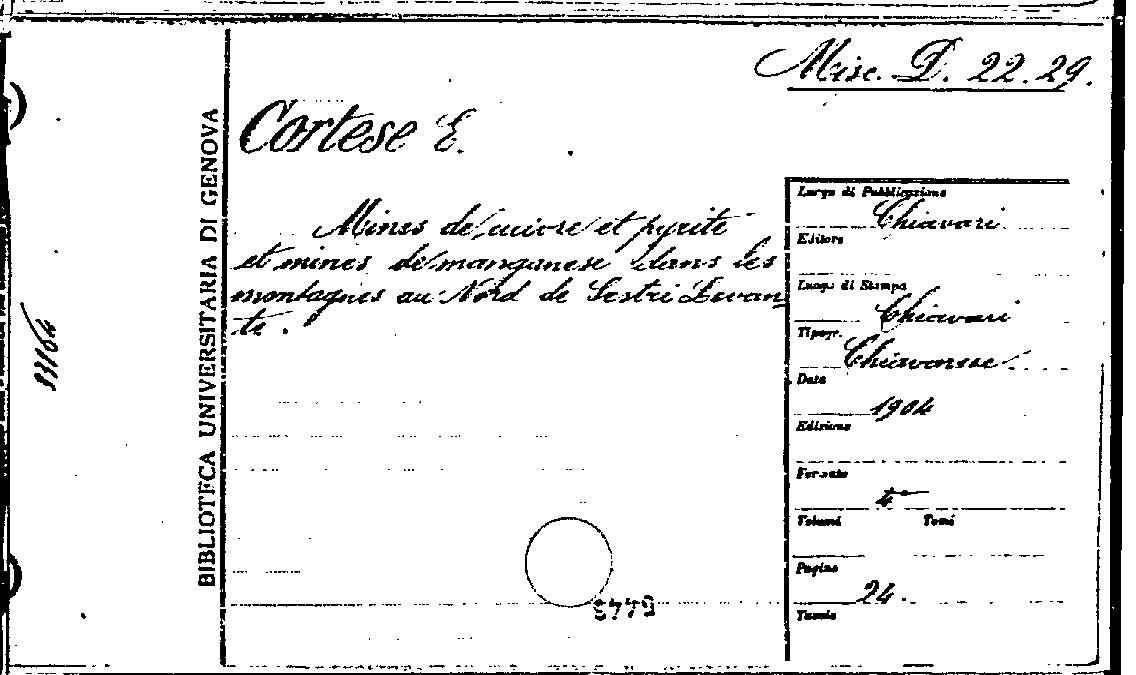 Misc. D. 22.29.
Cortese E.
Mines de cuivre et pyrite
et mines de manganese dans les
montagnes au Nord de Sestri Levan-
te.
BIBLIOTECA UNIVERSITARIA DI GENOVA
Luogo di Pubblicazione
Chiavari
Editore
Luogo di Stampa
Chiavari
Tipogr.
Chiavarese
Data
1904
Edizione
Formato
4°
Volumi Tomi
Pagine
24.
Tavole